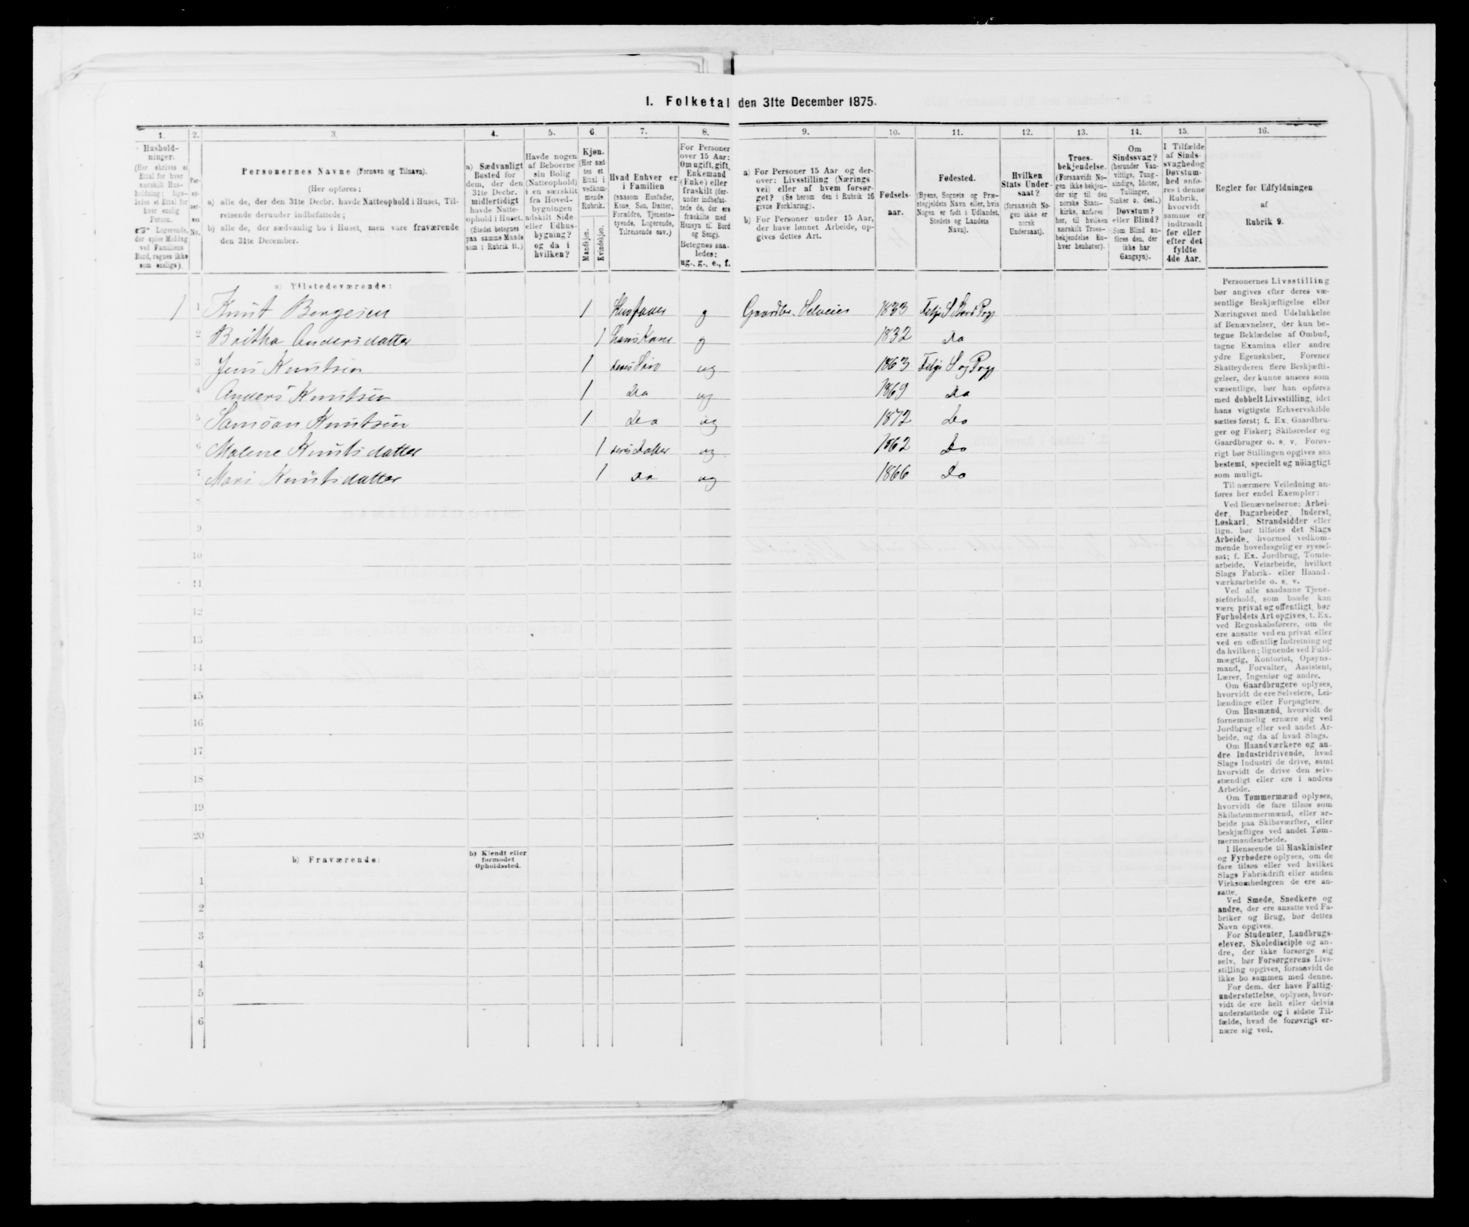 I. Folketal den 31te December 1875.
1. 2. 3. 4. 5. 6. 7. 8. 9. 10. 11. 12. 13. 14. 15. 16.
Hushold-
ninger.
Personernes Navne (Fornavn og Tilnavn).
(Her opføres:
a) alle de, der den 31te Decbr. havde Natteophold i Huset, Til-
reisende derunder indbefattede;
b) alle de, der sædvanlig bo i Huset, men vare fraværende
den 31te December.
a) Sædvanligt
Bosted for
dem, der den
31te Decbr.
midlertidigt
havde Natte-
ophold i Huset.
(Stedet betegnes
paa samme Maade
som i Rubrik 11.)
Havde nogen
af Beboerne
sin Bolig
(Natteophold)
i en særskilt
fra Hoved-
bygningen
adskilt Side
eller Udhus-
bygning?
og da i
hvilken?
Kjøn.
Mandkjøn.
Kvindekjøn.
Hvad Enhver er
i Familien
(saasom Husfader,
Kone, Søn, Datter,
Forældre, Tjeneste-
tyende, Logerende,
Tilreisende osv.)
For Personer
over 15 Aar:
Om ugift, gift,
Enkemand
(Enke) eller
fraskilt
Betegnes saa-
ledes:
ug., g., e., f.
a) For Personer 15 Aar og der-
over: Livsstilling (Nærings
vei) eller af hvem forsør-
get? (Se herom den i Rubrik 16
givne Forklaring).
b) For Personer under 15 Aar,
der have lønnet Arbeide, op-
gives dettes Art.
Fødsels-
aar.
Fødested.
(Byens, Sognets og Præ-
stegjeldets Navn eller, hvis
Nogen er født i Udlandet,
Stedets og Landets
Navn).
Hvilken
Stats Under-
saat?
(forsaavidt No-
gen ikke er
norsk
Undersaat).
Troes-
bekjendelse.
(Forsaavidt No-
gen ikke bekjen-
der sig til den
norske Stats-
kirke, anføres
her, til hvilken
særskilt Troes-
bekjendelse En-
hver henhører).
Om
Sindssvag?
(herunder Van-
vittige, Tung-
sindige, Idioter,
Tullinger,
Sinker o. desl.)
Døvstum?
eller Blind?
Som Blind an-
føres den, der
ikke har
Gangsyn).
I Tilfælde
af Sinds-
svaghed og
Døvstum-
hed anfø-
res i denne
Rubrik,
hvorvidt
samme er
indtraadt
før eller
efter det
fyldte
4de Aar.
Regler for Udfyldningen
af
Rubrik 9.
a) Tilstedeværende:
1 1 Knut Borgesen 1 Husfader g Gaardbr. Selveier 1833
2 Britha Andersdatter 1 Hans Kone g 1832 Do
3 Jens Knutsen 1 deres Søn ug 1863
4 Anders Knutsen 1 do ug 1869 Do
5 Samson Knutsen 1 do ug 1872 Do
6 Malene Knutsdatter 1 deres datter ug 1862 Do
7 Mari Knutsdatter 1 do ug 1866 Do
8
9
10
11
12
13
14
15
16
17
18
19
20
b) Fraværende:
b) Kjendt eller
formodet
Opholdssted.
1
2
3
4
5
6
Personernes Livsstilling
bør angives efter deres væ-
sentlige Beskjæftigelse eller
Næringsvei med Udelukkelse
af Benævnelser, der kun be-
tegne Beklædelse af Ombud,
tagne Examina eller andre
ydre Egenskaber. Forener
Skatteyderen flere Beskjæfti-
gelser, der kunne ansees som
væsentlige, bør han opføres
med dobbelt Livsstilling, idet
hans vigtigste Erhvervskilde
sættes først; f. Ex. Gaardbru-
ger og Fisker; Skibsreder og
Gaardbruger o. s. v. Forøv-
rigt bør Stillingen opgives saa
bestemt, specielt og nøiagtigt
som muligt.
Til nærmere Veiledning an-
føres her endel Exempler:
Ved Benævnelserne: Arbei-
der, Dagarbeider, Inderst,
Løskarl, Strandsidder eller
lign. bør tilføies det Slags
Arbeide, hvormed vedkom-
mende hovedsagelig er syssel-
sat; f. Ex. Jordbrug, Tomte-
arbeide, Veiarbeide, hvilket
Slags Fabrik- eller Haand-
værksarbeide o. s. v.
Ved alle saadanne Tjene-
steforhold, som baade kan
være privat og offentligt, bør
Forholdets Art opgives, t. Ex.
ved Regnskabsførere, om de
ere ansatte ved en privat eller
ved en offentlig Indretning og
da hvilken; lignende ved Fuld-
mægtig, Kontorist, Opsyns-
mand, Forvalter, Assistent,
Lærer, Ingeniør og andre.
Om Gaardbrugere oplyses,
hvorvidt de ere Selveiere, Lei-
lændinge eller Forpagtere.
Om Husmænd, hvorvidt de
fornemmelig ernære sig ved
Jordbrug eller ved andet Ar-
beide, og da af hvad Slags.
Om Haandværkere og an-
dre Industridrivende, hvad
Slags Industri de drive, samt
hvorvidt de drive den selv-
stændigt eller ere i andres
Arbeide.
Om Tømmermænd oplyses,
hvorvidt de fare tilsøs som
Skibstømmermænd, eller ar-
beide paa Skibsværfter, eller
beskjæftiges ved andet Tøm-
mermandsarbeide.
I Henseende til Maskinister
og Fyrbødere oplyses, om de
fare tilsøs eller ved hvilket
Slags Fabrikdrift eller anden
Virksomhedsgren de ere an-
satte.
Ved Smede, Snedkere og
andre, der ere ansatte ved Fa-
briker og Brug, bør dettes
Navn opgives.
For Studenter, Landbrugs-
elever, Skoledisciple og an-
dre, der ikke forsørge sig
selv, bør Forsørgerens Livs-
stilling opgives, forsaavidt de
ikke bo sammen med denne.
For dem, der have Fattig-
understøttelse, oplyses, hvor-
vidt de ere helt eller delvis
understøttede og i sidste Til-
fælde, hvad de forøvrigt er-
nære sig ved.